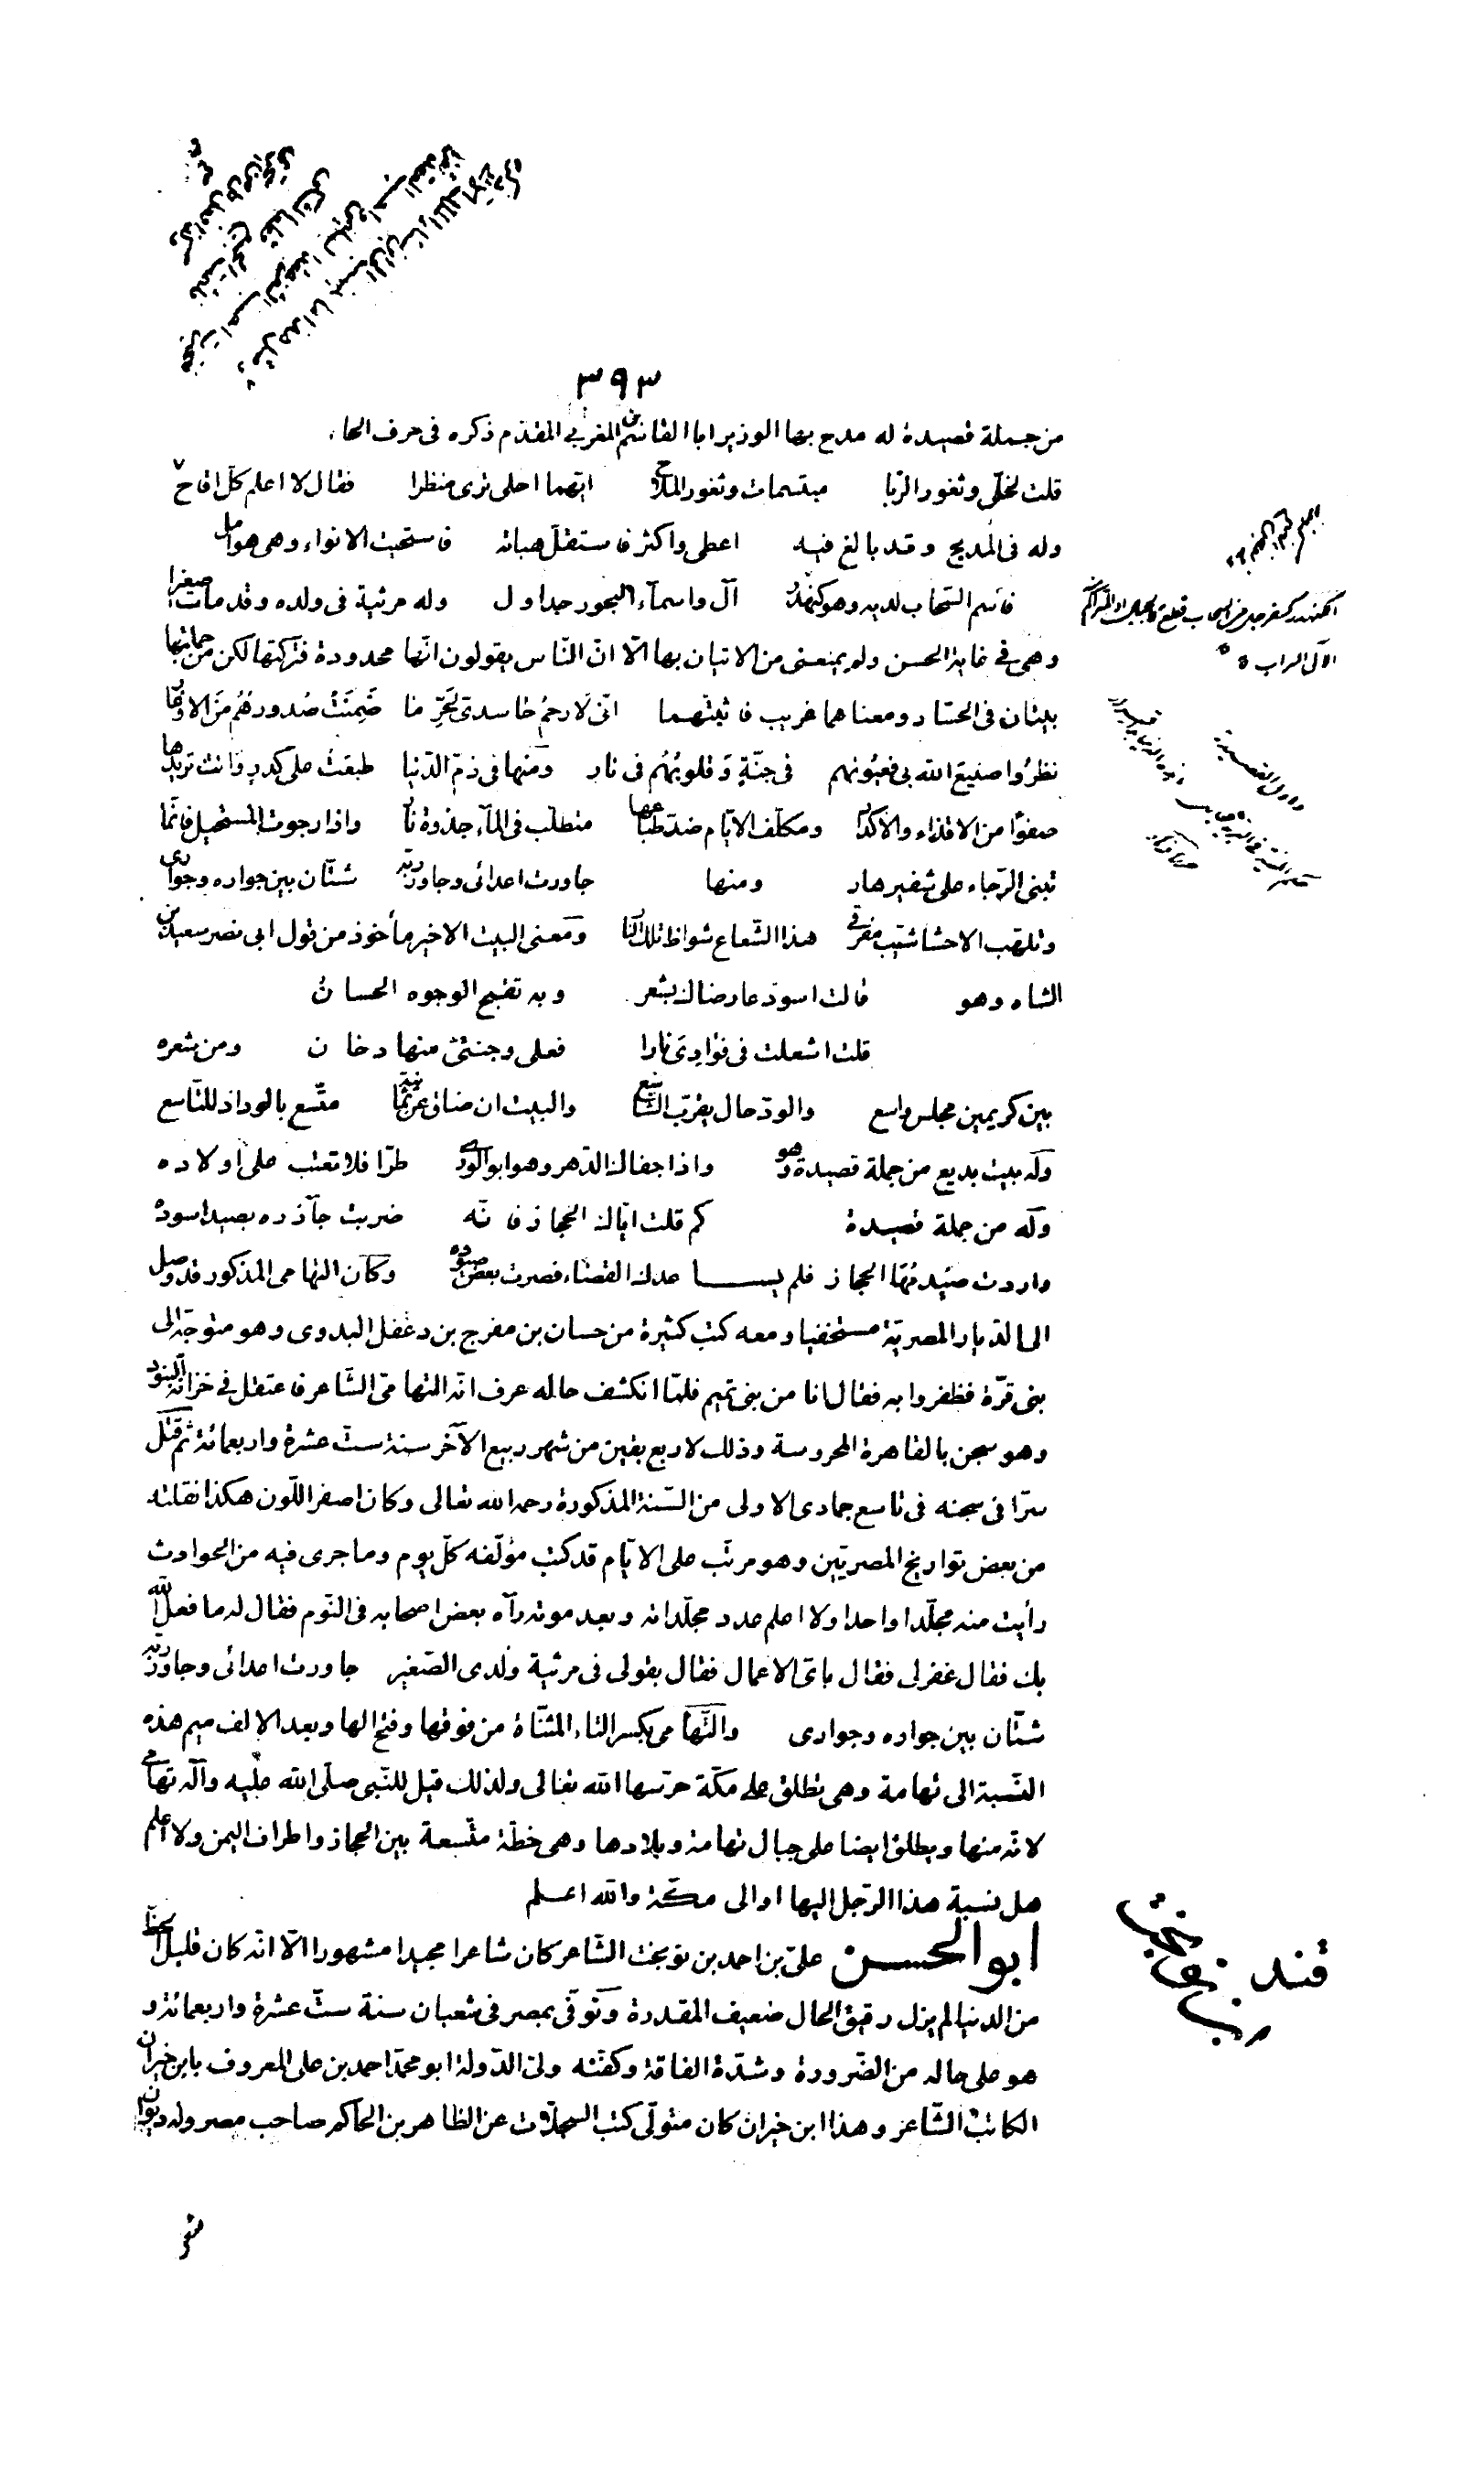 ٣٩٣
من جملة قصيدة له مدح بها الوزير ابا القاسم بن المغربي المقدّم ذكره فى حرف الحاء
قلت لخلّى وثغور الرّبا مبتسمات وثغور الملاح ايّهما احلى ترى منظرا فقال لا اعلم كلّ اقاح
وله فى المديح وقد بالغ فيه اعطى واكثر فاستقلّ هباته فاستحيت الانواء وهى هوامل
فاسم السّحاب لديه وهو كنهور آل واسمآء البحور جداول وله مرثية فى ولده وقد مات صغيرا
وهى فى غاية الحسن ولم يمنعنى من الاتيان بها الّا انّ النّاس يقولون انّها محدودة فتركتها لكن من جملتها
بيتان فى الحسّاد ومعناهما غريب فاثبتّهما انّى لَارحمُ حاسدىّ لِحَرّ ما ضَمِنَتْ صُدورهُم مَن الاوغار
نظرُوا صنيع الله بى فعيُونهم فى جنّةٍ وَقلوبُهُم فى نار ومنها فى ذمّ الدّنيا طبعتْ على كدرٍ وَانت تريدها
صفوًا من الاقذاء والاكدار ومكلّف الايّام ضدّ طباعها متطلّب فى المآء جذوة نار واذا رجوت المستحيل فانّما
تبنى الرّجاء على شفير هار ومنها جاورت اعدائى وجاور ربّه شتّان بين جواره وجوارى
وتلهّب الاحشا شيّب مفرقى هذا الشّعاع شواظ تلك النّار ومعنى البيت الاخير مأخوذ من قول ابى نصر سعيد بن
الشاه وهو قالت اسودّ عارضاك بشعر وبه تقبح الوجوه الحسان
قلت اشعلت فى فؤادِىَ نارا فعلى وجنتىّ منها دخان ومن شعره
بين كريمين مجلس واسع والودّ حال يقرّب الشّاسع والبيت ان ضاق عن ثمانية متّسع بالوداد للتّاسع
وله بيت بديع من جملة قصيدة وهو واذا جفاك الدّهر وهو ابو الورى طرّا فلا تعتب على اولاده
وله من جملة قصيدة كم قلت ايّاك الحجاز فانّه ضربت جآذره بصيد اسوده
واردت صيد مها الحجاز فلم يساعدك القضاء فصرت بعض صيوده وكان التهامى المذكور قد وصل
الى الدّيار المصريّة مستخفيا ومعه كتب كثيرة من حسان بن مفرج بن دغفل البدوى وهو متوجّه الى
بنى قرّة فظفروا به فقال انا من بنى تميم فلمّا انكشف حاله عرف انّه التهامىّ الشّاعر فاعتقل فى خزانة البنود
وهو سجن بالقاهرة المحروسة وذلك لاربع بقين من شهر ربيع الآخر سنة ستّ عشرة واربعمائة ثمّ قتل
سرّا فى سجنه فى تاسع جمادى الاولى من السّنة المذكورة رحمه الله تعالى وكان اصفر اللّون هكذا نقلته
من بعض تواريخ المصريّين وهو مرتّب على الايّام قد كتب مؤلّفه كلّ يوم وما جرى فيه من الحوادث
رأيت منه مجلّدا واحدا ولا اعلم عدد مجلّداته وبعد موته رآه بعض اصحابه فى النّوم فقال له ما فعل الله
بك فقال غفر لى فقال باىّ الاعمال فقال بقولى فى مرثية ولدى الصّغير جاورت اعدائى وجاور ربّه
شتّان بين جواره وجوارى والتّهامى بكسر التاء المثنّاة من فوقها وفتح الها وبعد الالف ميم هذه
النّسبة الى تهامة وهى تطلق على مكّة حرّسها الله تعالى ولذلك قيل للنّبى صلّى الله عليه وآله تهامى
لانّه منها ويطلق ايضا على جبال تهامة وبلادها وهى خطّة متّسعة بين الحجاز واطراف اليمن ولا اعلم
هل نسبة هذا الرّجل اليها او الى مكّة والله اعلم
ابو الحسن علىّ بن احمد بن نوبخت الشّاعر كان شاعرا مجيدا مشهورا الّا انّه كان قليل الحظّ
من الدنيا لم يزل رقيق الحال ضعيف المقدرة وتوفّى بمصر فى شعبان سنة ستّ عشرة واربعمائة و
هو على حاله من الضّرورة وشدّة الفاقة وكفّنه ولىّ الدّولة ابو محمّد احمد بن على المعروف بابن خيران
الكاتب الشّاعر وهذا ابن خيران كان متولّى كتب السجلّات عن الظاهر بن الحاكم صاحب مصر وله ديوان
شعر
الآل السراب
واول القصيدة
ابن نوبخت